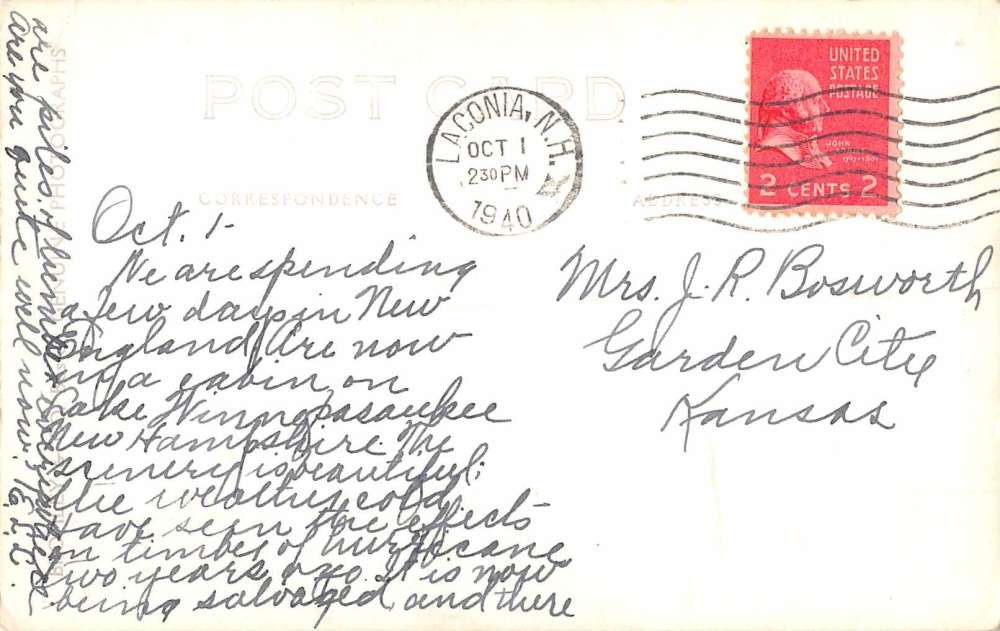 POST CARD
CORRESPONDENCE
ADDRESS
LACONIA, N.H.
OCT 1
2 30 PM
1940
UNITED
STATES
POSTAGE
JOHN
2 CENTS 2
Oct. 1-
We are spending
a few days in New
England. Are now
in a cabin on
Lake Winnepasaukee
New Hampshire. The
scenery is beautiful;
the weather cold.
Have seen the effects
on timber of hurricane
two years ago. It is now
being salvaged, and there
are piles of lumber everywhere
Are you quite well now?
Mrs. J. R. Bosworth
Garden City
Kansas
GENUINE PHOTOGRAPHS